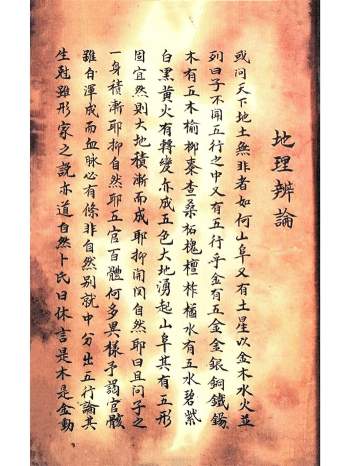 地理辨論
或問天下地土無非者如何山阜又有土星以金木水火並
列曰子不聞五行之中又有五行乎金有五金金銀銅鐵錫
木有五木榆柳棗杏桑柘槐檀柞楢水有五水碧紫
白黑黃火有轉變亦成五色大地湧起山阜其有五形
固宜然則大地積漸而成耶抑開闢自然耶曰且问子之
一身積漸耶抑自然耶五官百體何多異樣予謂官骸
雖自渾成而血脉必有條非自然別就中分出五行論其
生尅雖形家之説亦道自然卜氏曰休言是木是金動